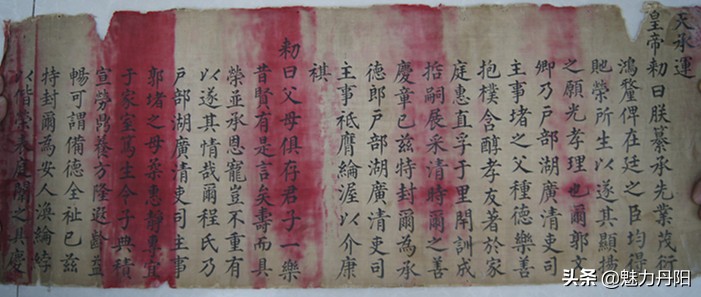 天承運
皇帝勅曰朕纂承先業茂衍
鴻釐俾在廷之臣均得
貤榮所生以遂其顯揚
之願光孝理也爾郭文
卿乃戶部湖廣清吏司
主事堵之父種德樂善
抱樸含醇孝友著於家
庭惠直孚于里閈訓成
括嗣展采清時爾之善
慶章已茲特封爾為承
德郎戶部湖廣清吏司
主事祗膺綸渥以介康
祺
勅曰父母俱存君子一樂
昔賢有是言矣壽而具
榮並承恩寵豈不重有
以遂其情哉爾程氏乃
戶部湖廣清吏司主事
郭堵之母柔惠靜專宜
于家室篤生令子典積
宣勞鼎養方隆遐齡益
暢可謂備德全祉已茲
特封爾為安人渙綸綍
以偕榮表庭闈之具慶
头条 @魅力丹阳